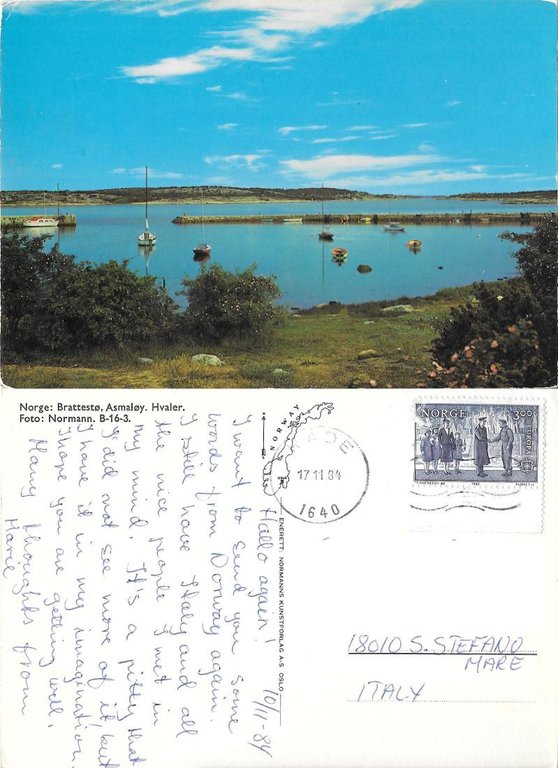 Norge: Brattestø, Asmaløy. Hvaler.
Foto: Normann. B-16-3.
NORWAY
ENERETT: NORMANNS KUNSTFORLAG A-S OSLO
10/11-84
Hallo again!
I want to send you some
words from Norway again.
I still have Italy and all
the nice people I met in
my mind. It's a pitty that
I did not see more of it but
I have it in my imagination.
I hope you are getting well.
Many thoughts from
Marie
17 11 84
1640
NORGE 300
EUROPA
1982
18010 S. STEFANO
MARE
ITALY